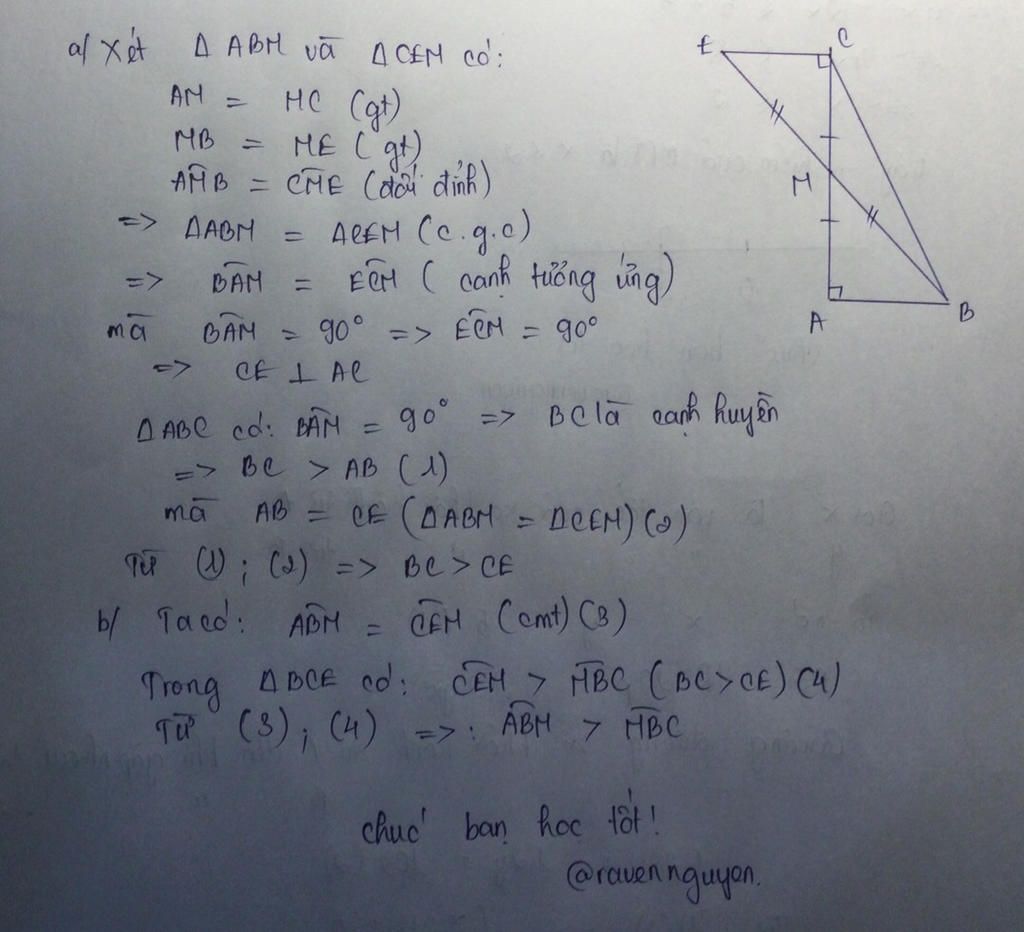 a/ Xét Δ ABM và Δ CEM có:
AM = MC (gt)
MB = ME (gt)
AMB = CME (đối đỉnh)
=> ΔABM = ΔCEM (c.g.c)
=> BAM = ECM (cạnh tương ứng)
mà BAM = 90° => ECM = 90°
=> CE ⊥ AC
ΔABC có: BAM = 90° => BC là cạnh huyền
=> BC > AB (1)
mà AB = CE (ΔABM = ΔCEM) (2)
Từ (1); (2) => BC > CE
b/ Ta có: ABM = CEM (cmt) (3)
Trong ΔBCE có: CEM > MBC (BC > CE) (4)
Từ (3); (4) =>: ABM > MBC
chúc bạn học tốt!
@ravennguyen.
E
C
M
A
B